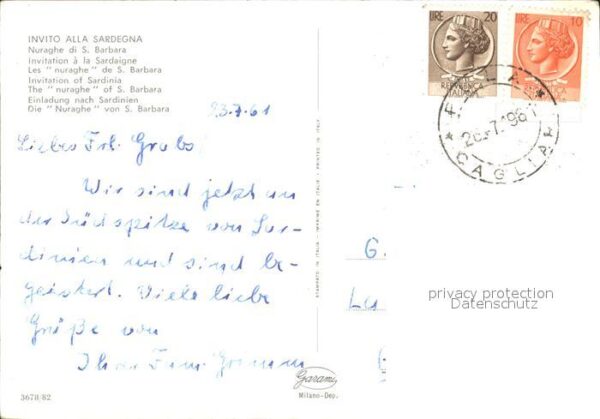 INVITO ALLA SARDEGNA
Nuraghe di S. Barbara
Invitation à la Sardaigne
Les "nuraghe" de S. Barbara
Invitation of Sardinia
The "nuraghe" of S. Barbara
Einladung nach Sardinien
Die "Nuraghe" von S. Barbara
23.7.61
Liebes Frl. Grabs!
Wir sind jetzt an
der Südspitze von Sar-
dinien und sind be-
geistert. Viele liebe
Grüße von
Ihrer Fam. Gramm
3678/82
STAMPATO IN ITALIA - IMPRIMÉ EN ITALIE - PRINTED IN ITALY
Garami
Milano-Dep.
LIRE 20
LIRE 10
REPVBBLICA
ITALIANA
7.196
CAGLIARI
G.
Lu
privacy protection
Datenschutz